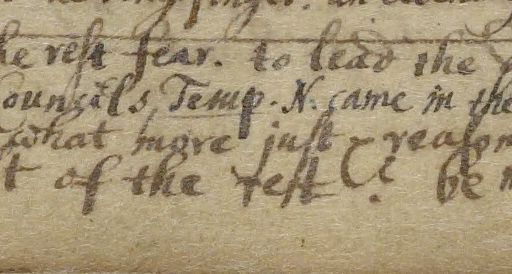 he ring finger. an
he rest fear. to lead the
ouncils, Temp. N. came in the
what more just & reason
t of the rest &c. be